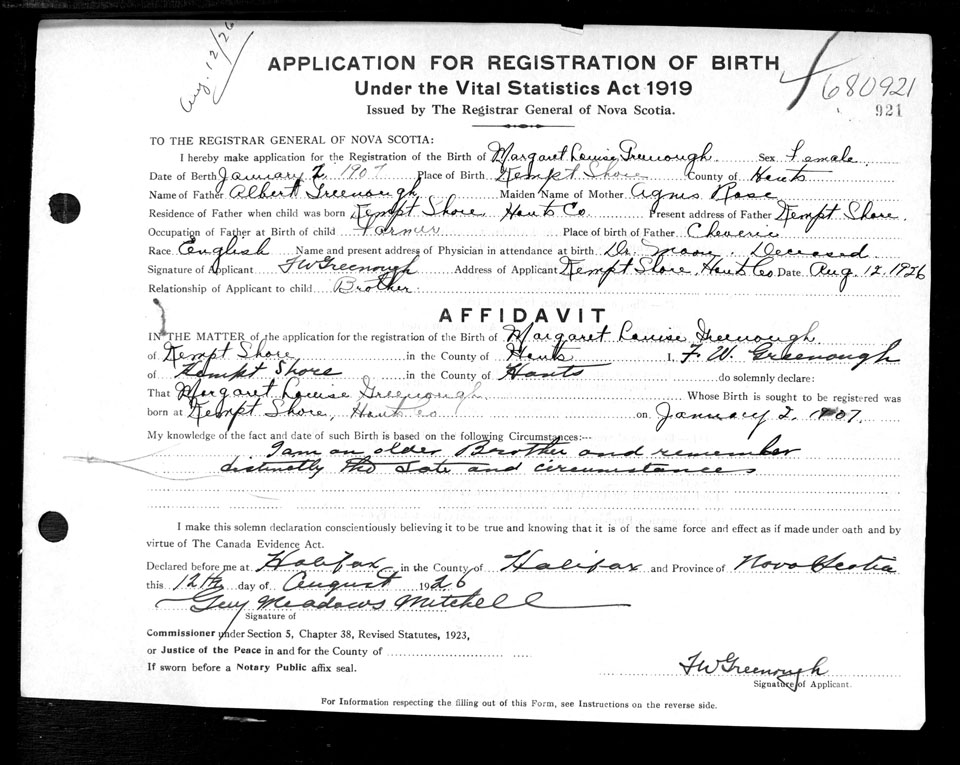 Aug. 12/26
APPLICATION FOR REGISTRATION OF BIRTH
Under the Vital Statistics Act 1919
Issued by The Registrar General of Nova Scotia.
680921
921
TO THE REGISTRAR GENERAL OF NOVA SCOTIA:
I hereby make application for the Registration of the Birth of Margaret Louise Greenough Sex Female
Date of Birth January 2 1907 Place of Birth Kempt Shore County of Hants
Name of Father Albert Greenough Maiden Name of Mother Agnes Rose
Residence of Father when child was born Kempt Shore Hants Co Present address of Father Kempt Shore.
Occupation of Father at Birth of child Farmer Place of birth of Father Cheverie
Race English Name and present address of Physician in attendance at birth Dr. Deceased
Signature of Applicant F W Greenough Address of Applicant Kempt Shore, Hants Co Date Aug. 12, 1926
Relationship of Applicant to child Brother
AFFIDAVIT
IN THE MATTER of the application for the registration of the Birth of Margaret Louise Greenough
of Kempt Shore in the County of Hants I, F. W. Greenough
of Kempt Shore in the County of Hants do solemnly declare:
That Margaret Louise Greenough Whose Birth is sought to be registered was
born at Kempt Shore, Hants Co on January 2, 1907.
My knowledge of the fact and date of such Birth is based on the following Circumstances:--
I am an older Brother and remember
distinctly the date and circumstances
I make this solemn declaration conscientiously believing it to be true and knowing that it is of the same force and effect as if made under oath and by
virtue of The Canada Evidence Act.
Declared before me at Halifax in the County of Halifax and Province of Nova Scotia
this 12th day of August 1926
Guy Meadows Mitchell
Signature of
Commissioner under Section 5, Chapter 38, Revised Statutes, 1923,
or Justice of the Peace in and for the County of
If sworn before a Notary Public affix seal.
F W Greenough
Signature of Applicant.
For Information respecting the filling out of this Form, see Instructions on the reverse side.